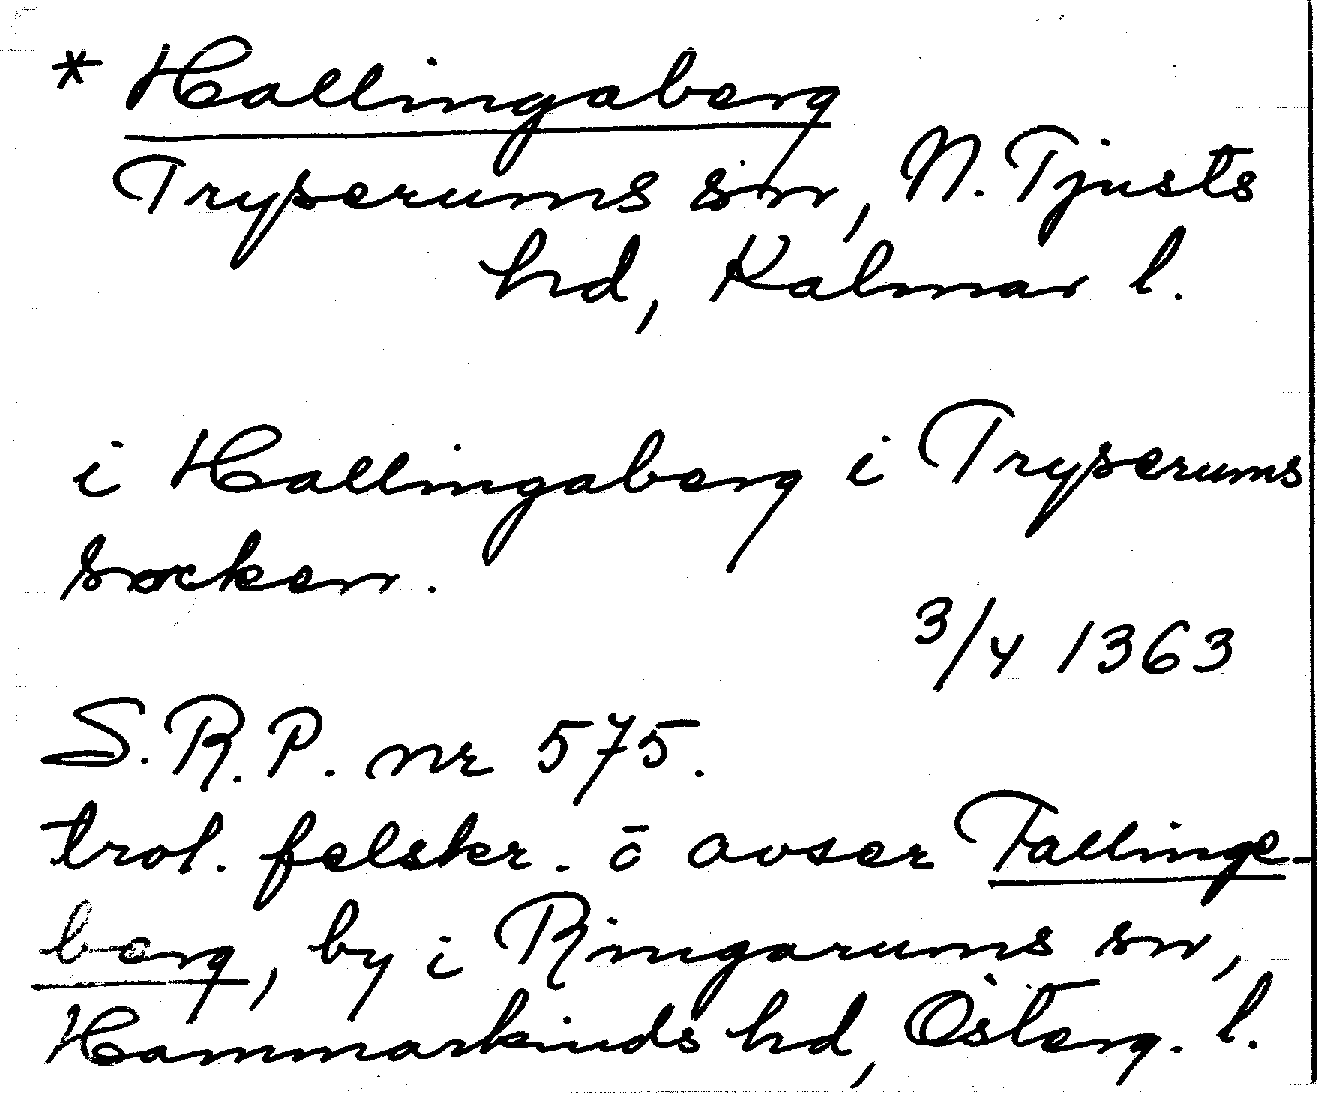 * Hallingaberg
Tryserums sn, N. Tjusts
hd, Kalmar l.
i Hallingaberg i Tryserums
socken.
3/4 1363
S.R.P. nr 575.
trol. felskr. o avser Fallinge-
berg, by i Ringarums sn,
Hammarkinds hd, Österg. l.